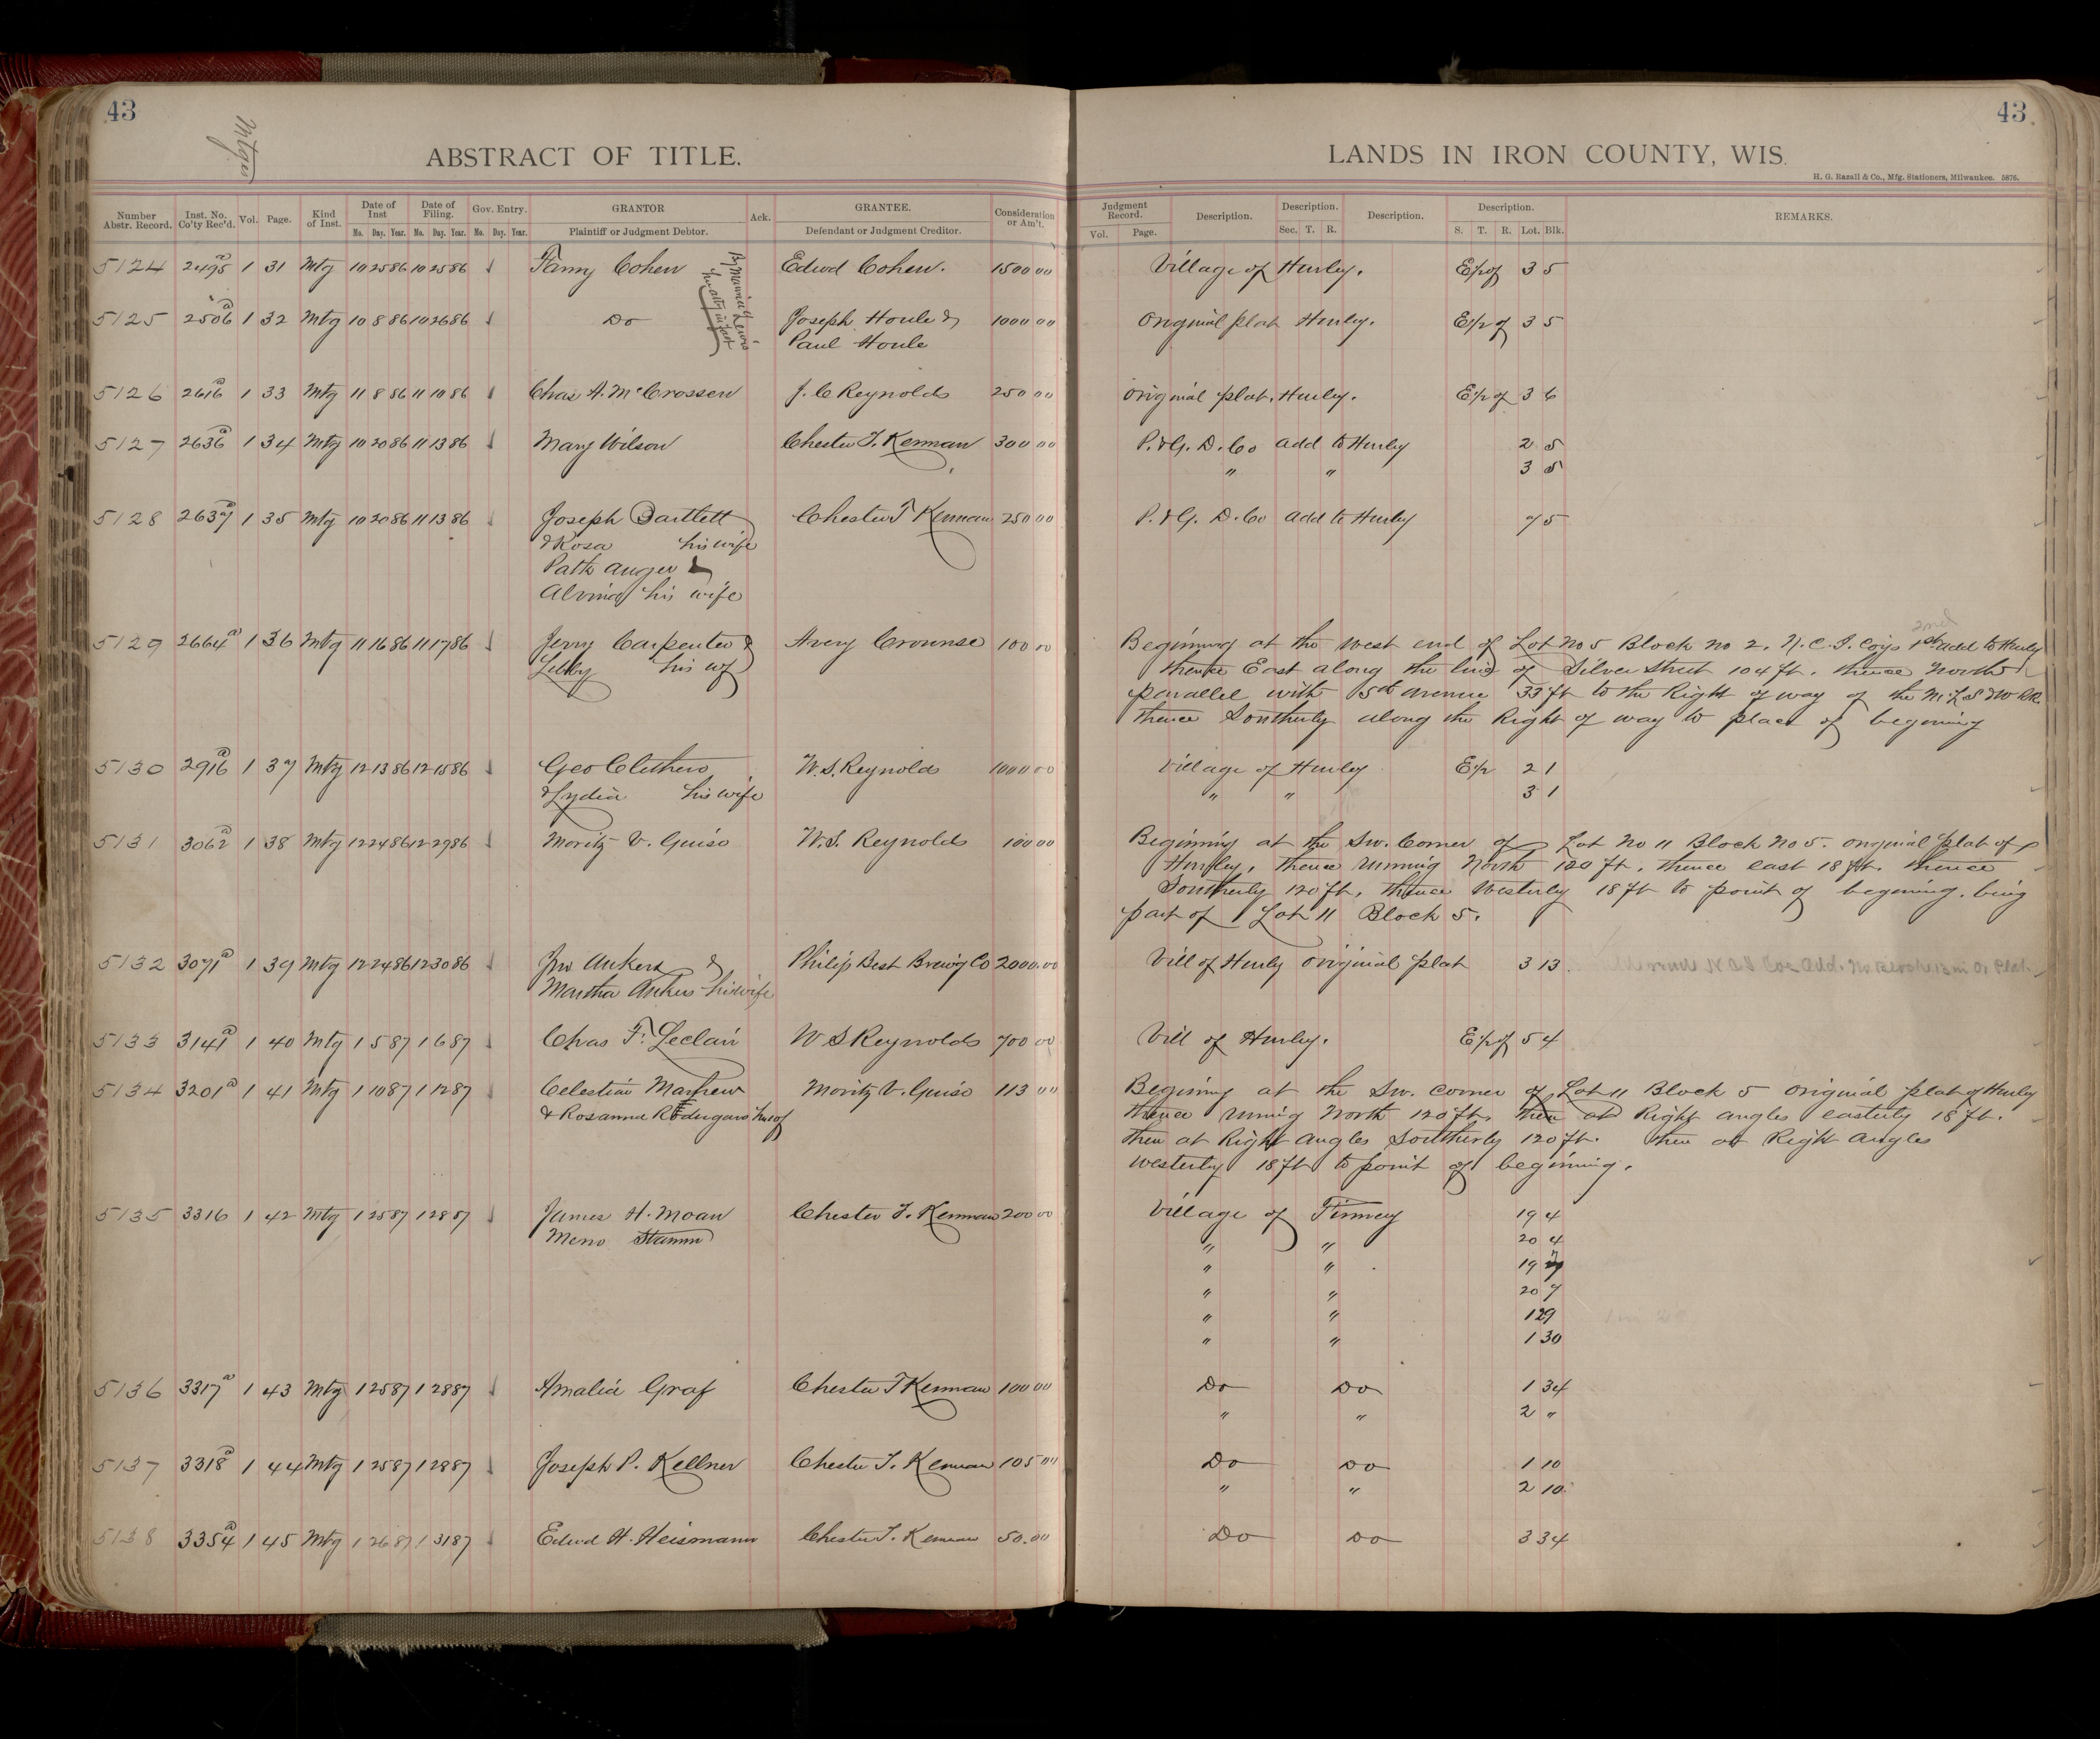 43
43
Mtges
ABSTRACT OF TITLE.
LANDS IN IRON COUNTY, WIS.
H. G. Razall & Co., Mfg. Stationers, Milwaukee. 5876.
Number Abstr. Record. Inst. No. Co'ty Rec'd. Vol. Page. Kind of Inst. Date of Inst Mo. Day. Year. Date of Filing. Mo. Day. Year. Gov. Entry. Mo. Day. Year. GRANTOR Plaintiff or Judgment Debtor. Ack. GRANTEE. Defendant or Judgment Creditor. Consideration or Am't. Judgment Record. Vol. Page. Description. Description. Sec. T. R. Description. Description. S. T. R. Lot. Blk. REMARKS.
5124 2495a 1 31 Mtg 10 25 86 10 25 86 Fanny Cohen Edwd Cohen. 1500 00 Village of Hurley. E½ of 3 5
By Maurice Lewis
her atty in fact
5125 2506a 1 32 Mtg 10 8 86 10 26 86 Do Joseph Houle & 1000 00 Original plat Hurley. E½ of 3 5
Paul Houle
5126 2616a 1 33 Mtg 11 8 86 11 10 86 Chas A. McCrossen J. C Reynolds 250 00 Original plat, Hurley. E½ of 3 6
5127 2636a 1 34 Mtg 10 20 86 11 13 86 Mary Wilson Chester T. Kennan 300 00 P. & G. D. Co add to Hurley 2 5
" " 3 5
5128 2637a 1 35 Mtg 10 20 86 11 13 86 Joseph Bartlett Chester T Kennan 250 00 P. & G. D. Co add to Hurley 7 5
& Rosa his wife
Patk Auger &
Alvina his wife
5129 2664a 1 36 Mtg 11 16 86 11 17 86 Jerry Carpenter & Avery Crounse 100 00 Beginning at the West end of Lot No 5 Block No 2. N. C. I. Coys 1st add to Hurley
2nd
Libby his wf thence East along the line of Silver Street 104 ft. thence North
parallel with 5th avenue 33 ft to the Right of way of the M. L. S & W RR.
thence Southerly along the Right of way to place of begining
5130 2916a 1 37 Mtg 12 13 86 12 15 86 Geo Clithero W. S. Reynolds 1000 00 Village of Hurley E½ 2 1
& Lydia his wife " " 3 1
5131 3062a 1 38 Mtg 12 24 86 12 29 86 Moritz V. Guiso W. S. Reynolds 100 00 Beginning at the Sw. Corner of Lot No 11 Block No 5. original plat of
Hurley, thence running North 120 ft. thence east 18 ft. thence
Southerly 120 ft, thence Westerly 18 ft to point of begening. being
part of Lot 11 Block 5.
5132 3071a 1 39 Mtg 12 24 86 12 30 86 Jno Ankers & Philip Best Brewig Co 2000.00 Vill of Hurley original plat 3 13
Martha Ankers his wife
5133 3141a 1 40 Mtg 1 5 87 1 6 87 Chas F. Leclair W S Reynolds 700 00 Vill of Hurley. E½ of 5 4
5134 3201a 1 41 Mtg 1 10 87 1 12 87 Celestin Mayhew Moritz V. Guiso 113 00 Begining at the Sw. corner of Lot 11 Block 5 original plat of Hurley
& Rosanna thence runnig North 120 ft. then at Right angles easterly 18 ft.
then at Right angles Southerly 120 ft. then at Right angles
westerly 18 ft to point of beginning.
5135 3316 1 42 Mtg 1 25 87 1 28 87 James H. Moan Chester T. Kennan 200 00 Village of Finney 19 4
Meno Stamm " " 20 4
" " 19 7
" " 20 7
" " 1 29
" " 1 30
5136 3317a 1 43 Mtg 1 25 87 1 28 87 Amalia Graf Chester T Kennan 100 00 Do Do 1 34
" " 2 "
5137 3318a 1 44 Mtg 1 25 87 1 28 87 Joseph P. Kellner Chester T. Kennan 105 00 Do Do 1 10
" " 2 10
5138 3354a 1 45 Mtg 1 26 87 1 31 87 Edwd H. Heismann Chester T. Kennan 50.00 Do Do 3 34